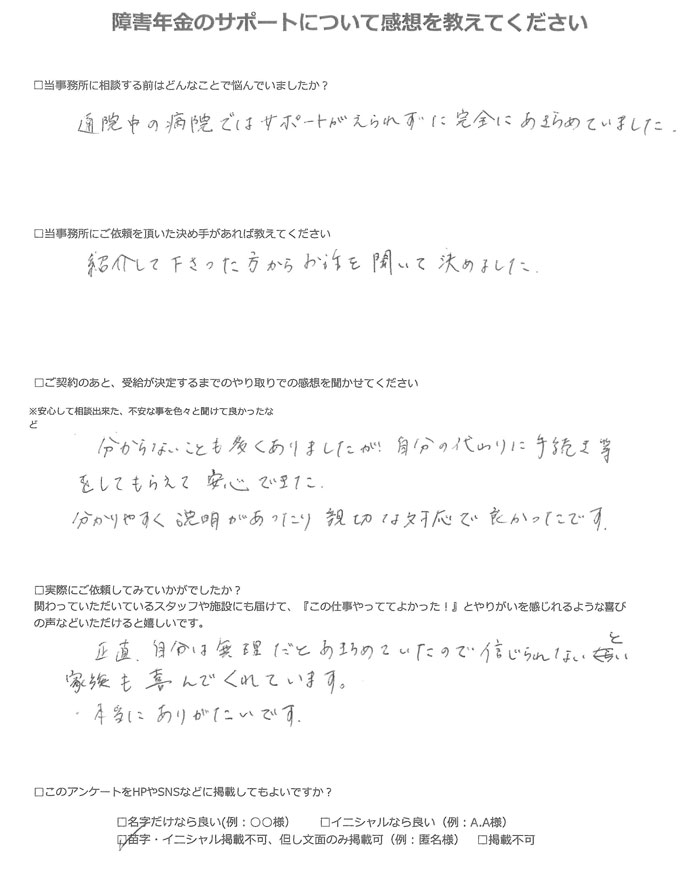 障害年金のサポートについて感想を教えてください
□当事務所に相談する前はどんなことで悩んでいましたか？
通院中の病院ではサポートがえられずに完全にあきらめていました.
□当事務所にご依頼を頂いた決め手があれば教えてください
紹介して下さった方からお話を聞いて決めました.
□ご契約のあと、受給が決定するまでのやり取りでの感想を聞かせてください
※安心して相談出来た、不安な事を色々と聞けて良かったな
ど
分からないことも多くありましたが、自分の代わりに手続き等
をしてもらえて安心できた.
分かりやすく説明があったり親切な対応で良かったです.
□実際にご依頼してみていかがでしたか？
関わっていただいているスタッフや施設にも届けて、『この仕事やっててよかった！』とやりがいを感じれるような喜び
の声などいただけると嬉しいです。
正直、自分は無理だとあきらめていたので信じられないと
家族も喜んでくれています。
・本当にありがたいです.
□このアンケートをHPやSNSなどに掲載してもよいですか？
□名字だけなら良い(例：○○様）　□イニシャルなら良い（例：A.A様）
☑苗字・イニシャル掲載不可、但し文面のみ掲載可（例：匿名様）　□掲載不可